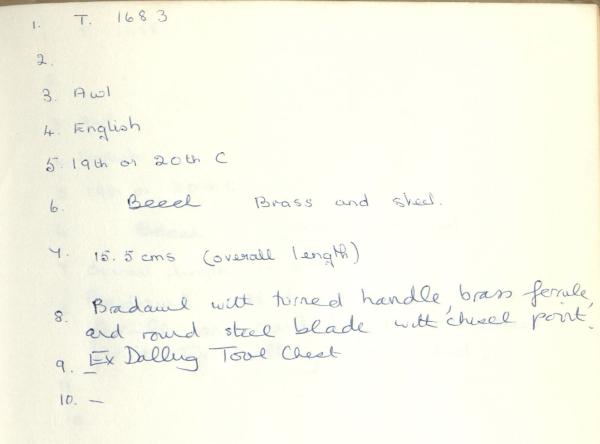 1. T. 1683
2.
3. Awl
4. English
5. 19th or 20th C
6. Beech Brass and steel.
7. 15.5 cms (overall length)
8. Bradawl with turned handle, brass ferrule,
and round steel blade with chisel point.
Ex Tool Chest
9. –
10. –